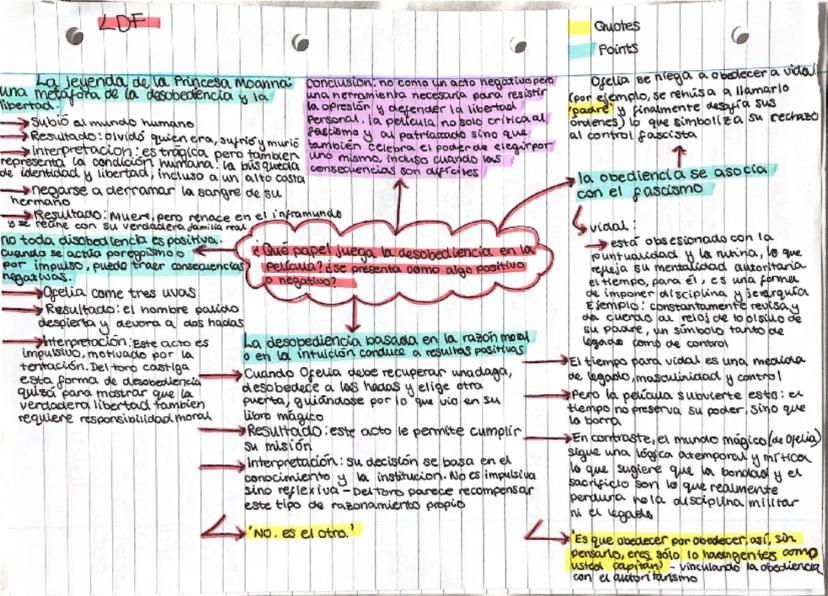 LDF
Quotes
Points
La leyenda de la Princesa Moanna:
una metáfora de la desobediencia y la
libertad.
Subió al mundo humano
Resultado: olvidó quien era, sufrió y murió
Interpretación: es trágica pero tambien
representa la condición humana: la búsqueda
de identidad y libertad, incluso a un alto costa
negarse a derramar la sangre de su
hermano
Resultado: Muere, pero renace en el inframundo
y se reúne con su verdadera familia real
no toda disobediencia es positiva.
cuando se actúa por egoísmo o
por impulso, puede traer consecuencias
negativas.
Ofelia come tres uvas
Resultado: el hombre palido
despierta y devora a dos hadas
Interpretación: Este acto es
impulsivo, motivado por la
tentación. Del toro castiga
esta forma de desobediencia
quizá para mostrar que la
verdadera libertad tambien
requiere responsabilidad moral
conclusión: no como un acto negativo pero
una herramienta necesaria para resistir
la opresión y defender la libertad
Personal. la película no solo critica al
fascismo y al patriarcado sino que
también celebra el poder de elegir por
uno mismo, incluso cuando las
consecuencias son difíciles
¿Qué papel juega la desobediencia en la
película? ¿se presenta como algo positivo
o negativo?
La desobediencia basada en la razón moral
o en la intuición conduce a resultas positivas
Cuando Ofelia debe recuperar una daga,
desobedece a las hadas y elige otra
puerta, guiándose por lo que vio en su
libro mágico
Resultado: este acto le permite cumplir
su misión
Interpretación: su decisión se basa en el
conocimiento y la institucion. No es impulsiva
sino reflexiva - Del Toro parece recompensar
este tipo de razonamiento propio
'No. es el otro.'
Ofelia se niega a obedecer a vidal
(por ejemplo, se rehúsa a llamarlo
'padre' y finalmente desafía sus
órdenes) lo que simboliza su rechazo
al control fascista
la obediencia se asocia
con el fascismo
vidal:
está obsesionado con la
puntualidad y la rutina, lo que
refleja su mentalidad autoritaria
el tiempo, para él, es una forma
de imponer disciplina y jerarquía
Ejemplo: constantemente revisa y
da cuerda al reloj de bolsillo de
su padre, un símbolo tanto de
legado como de control
El tiempo para vidal es una medida
de legado, masculinidad y control
Pero la película subvierte esto: el
tiempo no preserva su poder, sino que
lo borra
En contraste, el mundo mágico (de Ofelia)
sigue una lógica atemporal y mítica
lo que sugiere que la bondad y el
sacrificio son lo que realmente
perdura no la disciplina militar
ni el legado
'Es que obedecer por obedecer, así, sin
pensarlo, eres sólo lo hacen gentes como
usted capitán' - vinculando la obediencia
con el autoritarismo